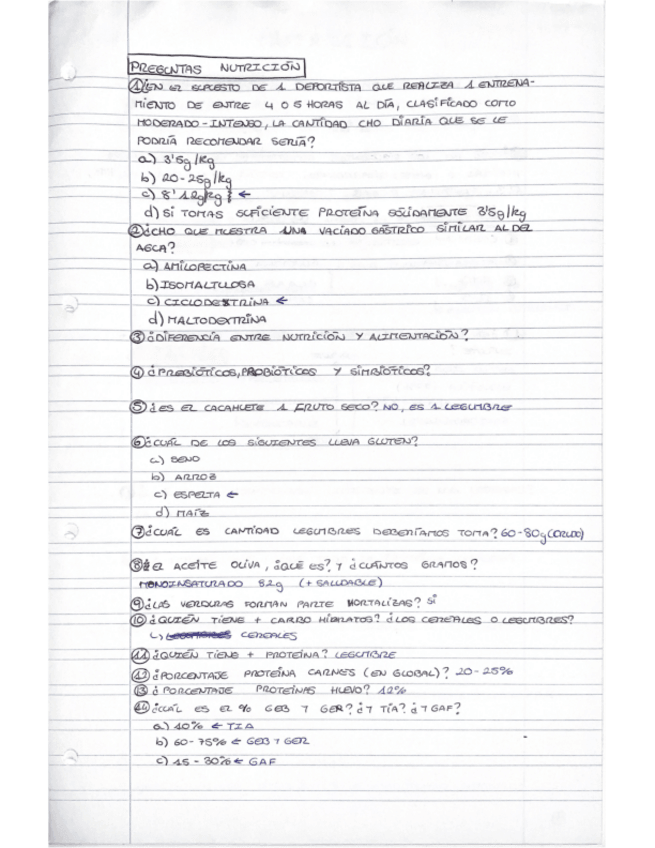 PREGUNTAS NUTRICIÓN
① ¿EN EL SUPUESTO DE 1 DEPORTISTA QUE REALIZA 1 ENTRENA-
MIENTO DE ENTRE 4 O 5 HORAS AL DÍA, CLASIFICADO COMO
MODERADO-INTENSO, LA CANTIDAD CHO DIARIA QUE SE LE
PODRÍA RECOMENDAR SERÍA?
a) 3'5g/kg
b) 20-25g/kg
c) 8'12g/kg ←
d) SI TOMAS SUFICIENTE PROTEÍNA SÓLIDAMENTE 3'5g/kg
② ¿CHO QUE MUESTRA UNA VACIADO GÁSTRICO SIMILAR AL DEL
AGUA?
a) AMILOPECTINA
b) ISOMALTULOSA
c) CICLODEXTRINA ←
d) MALTODEXTRINA
③ ¿DIFERENCIA ENTRE NUTRICIÓN Y ALIMENTACIÓN?
④ ¿PREBIÓTICOS, PROBIÓTICOS Y SIMBIÓTICOS?
⑤ ¿ES EL CACAHUETE 1 FRUTO SECO? NO, ES 1 LEGUMBRE
⑥ ¿CUÁL DE LOS SIGUIENTES LLEVA GLUTEN?
a) SENO
b) ARROZ
c) ESPELTA ←
d) MAÍZ
⑦ ¿CUÁL ES CANTIDAD LEGUMBRES DEBERÍAMOS TOMA? 60-80g (CRUDO)
⑧ EL ACEITE OLIVA, ¿QUÉ ES? Y ¿CUÁNTOS GRAMOS?
MONOINSATURADO 82g (+ SALUDABLE)
⑨ ¿LAS VERDURAS FORMAN PARTE HORTALIZAS? SÍ
⑩ ¿QUIÉN TIENE + CARBO HIDRATOS? ¿LOS CEREALES O LEGUMBRES?
↳ CEREALES
⑪ ¿QUIÉN TIENE + PROTEÍNA? LEGUMBRE
⑫ ¿PORCENTAJE PROTEÍNA CARNES (EN GLOBAL)? 20-25%
⑬ ¿PORCENTAJE PROTEÍNAS HUEVO? 12%
⑭ ¿CUÁL ES EL % GEB Y GER? ¿Y TÍA? ¿Y GAF?
a) 10% ← TIA
b) 60-75% ← GEB Y GER
c) 15-30% ← GAF